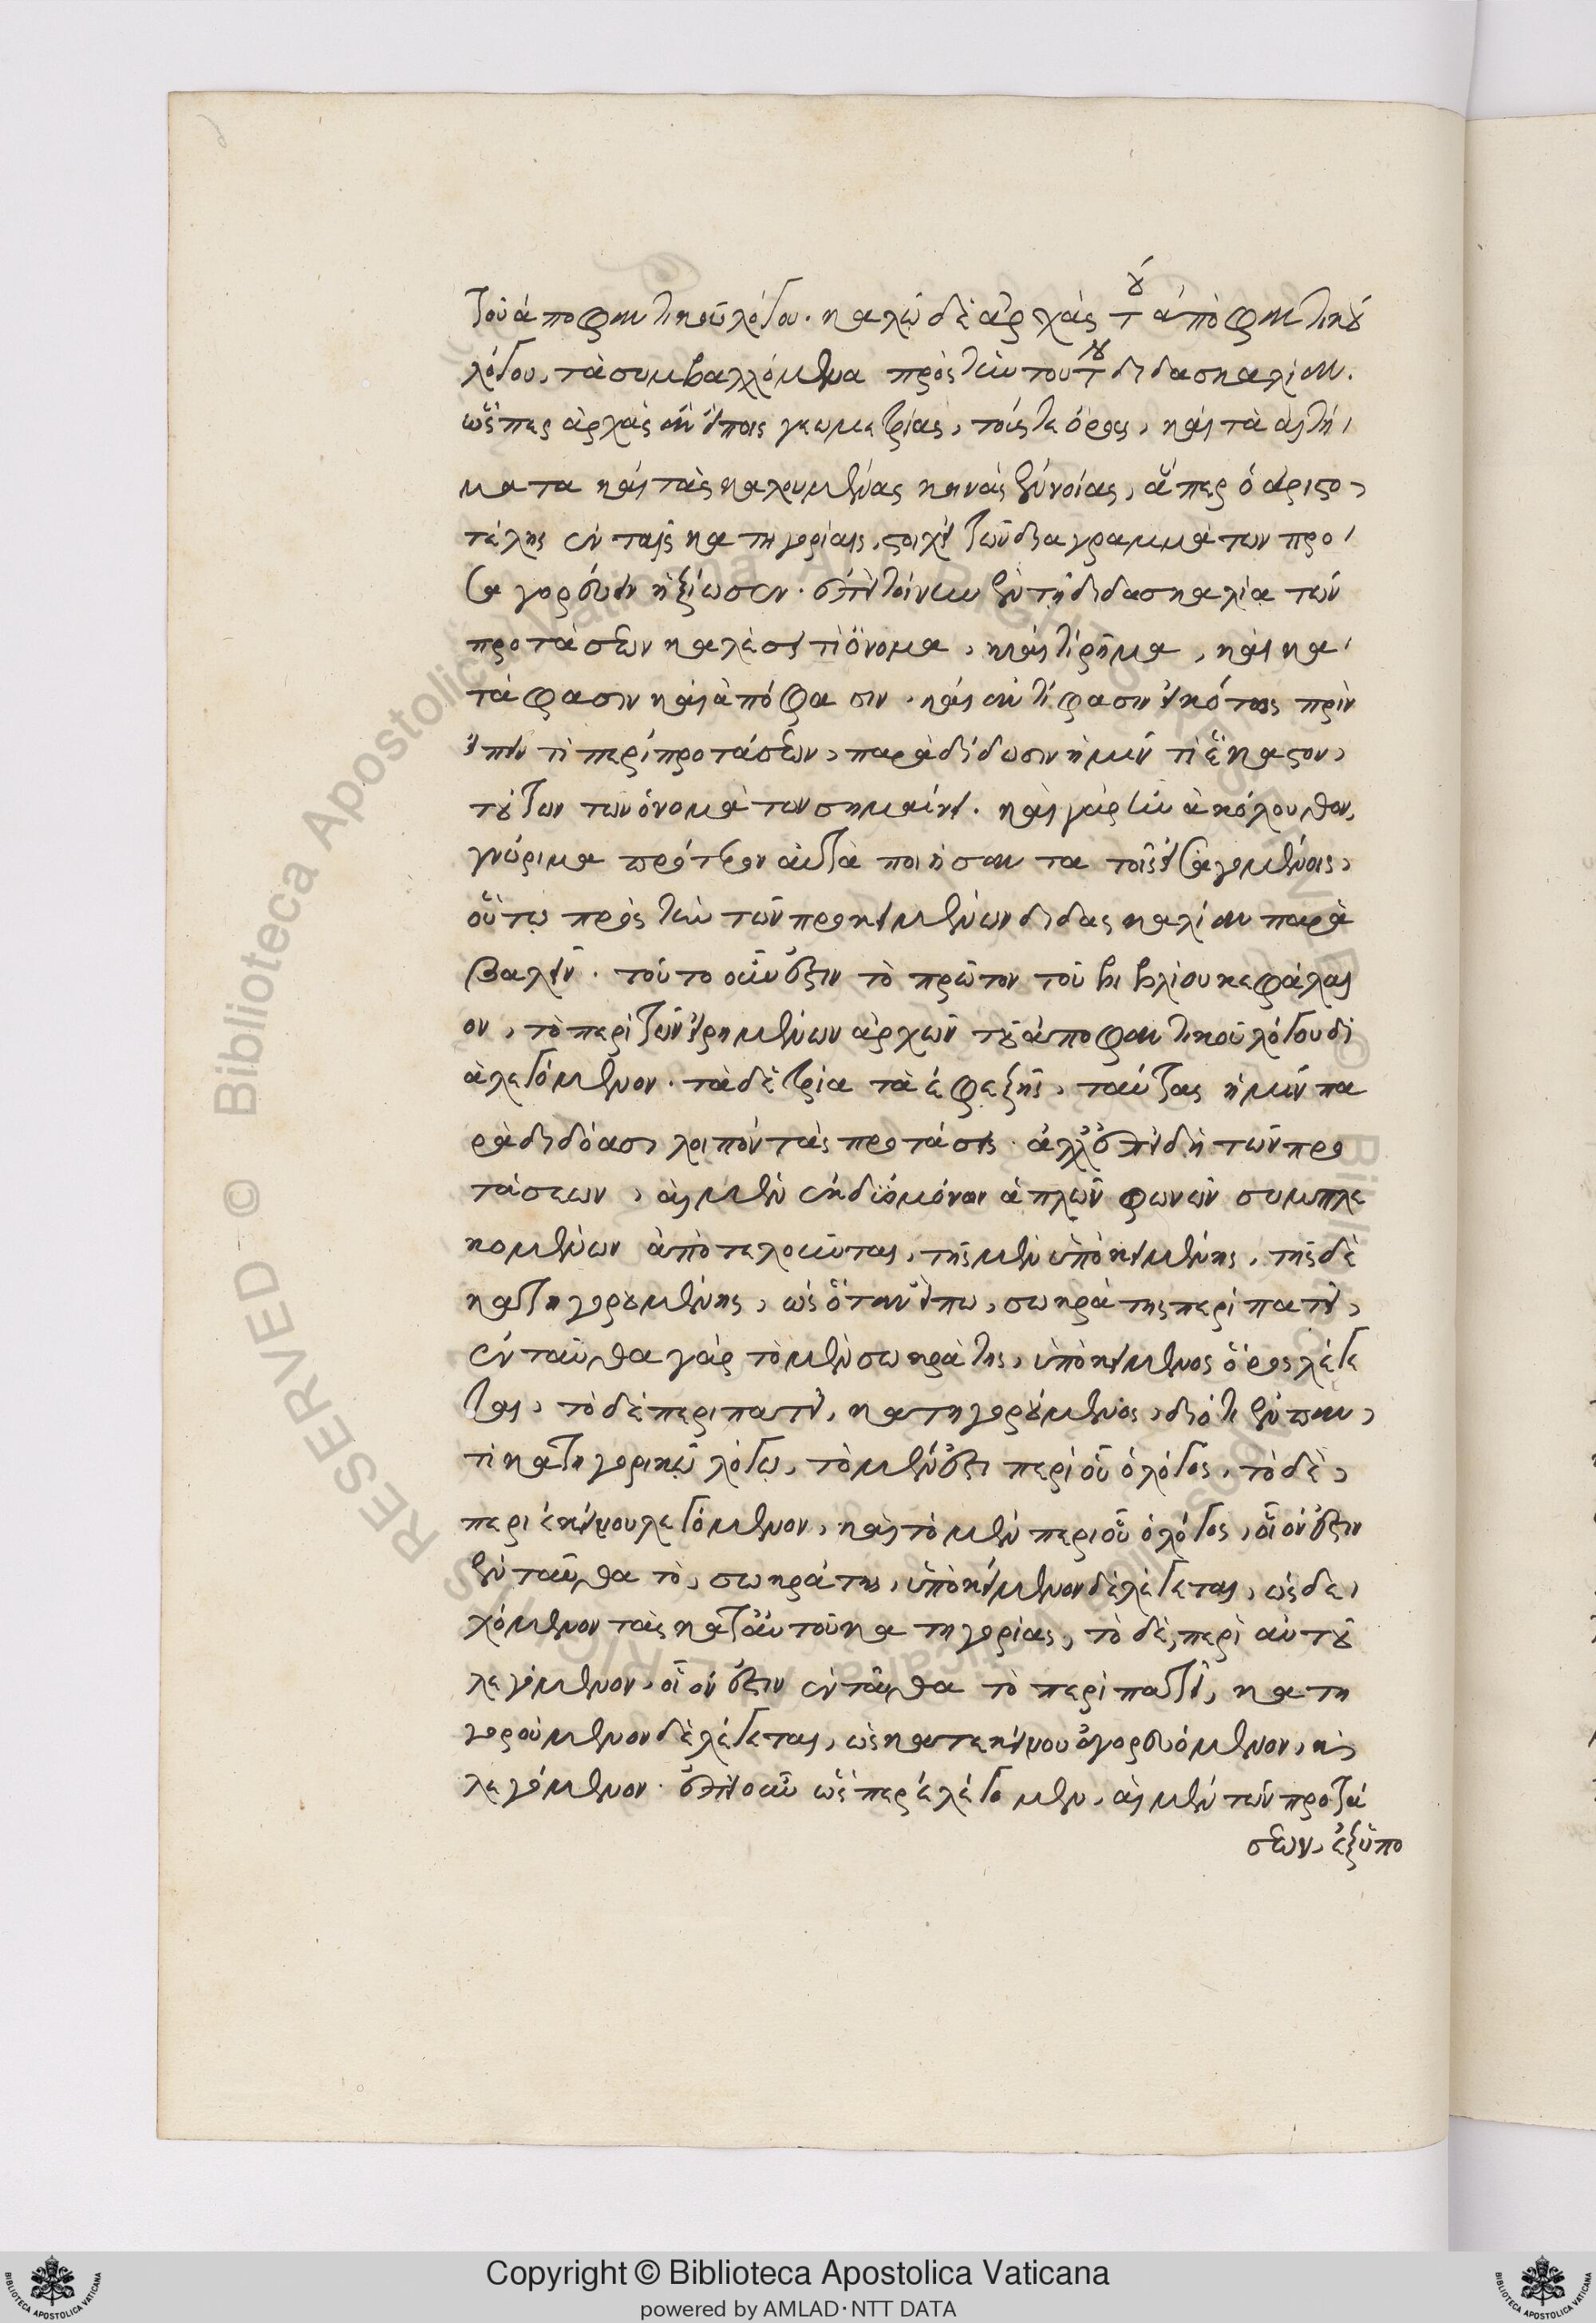 τοῦ ἀποφαντικοῦ λόγου. καλῶ δὲ ἀρχὰς τοῦ ἀποφαντικοῦ
λόγου, τὰ συμβαλλόμενα πρὸς τὴν τούτου διδασκαλίαν.
ὥσπερ ἀρχὰς ἂν εἴποις γεωμετρίας, τούς τε ὅρους, καὶ τὰ αἰτή
ματα καὶ τὰς καλουμένας κοινὰς ἐννοίας, ἅπερ ὁ ἀριστο
τέλης ἐν ταῖς κατηγορίαις, στοιχεῖα τῶν διαγραμμάτων προ
σαγορεύειν ἠξίωσεν. ἐπεὶ τοίνυν ἐν τῇ διδασκαλίᾳ τῶν
προτάσεων καλέσει τὶ ὄνομα, καὶ τὶ ῥῆμα, καὶ κα
τάφασιν καὶ ἀπόφασιν. καὶ ἀντίφασιν εἰκότως πρὶν
εἰπεῖν τὶ περὶ προτάσεων, παραδίδωσιν ἡμῖν τὶ ἕκαστον,
τούτων τῶν ὀνομάτων σημαίνει. καὶ γὰρ ἦν ἀκόλουθον,
γνώριμα πρότερον αὐτὰ ποιήσαντα τοῖς εἰσαγομένοις,
οὕτω πρὸς τὴν τῶν προκειμένων διδασκαλίαν παρα
βαλεῖν. τοῦτο οὖν ἐστιν τὸ πρῶτον τοῦ βιβλίου κεφάλαι
ον, τὸ περὶ τῶν εἰρημένων ἀρχῶν τοῦ ἀποφαντικοῦ λόγου δι
αλεγόμενον. τὰ δὲ τρία τὰ ἐφεξῆς, ταύτας ἡμῖν πα
ραδιδόασι λοιπὸν τὰς προτάσεις. ἀλλ' ἐπειδὴ τῶν προ
τάσεων, αἱ μὲν ἐκ δύο μόνον ἁπλῶν φωνῶν συμπλε
κομένων ἀποτελοῦνται, τῆς μὲν ὑποκειμένης, τῆς δὲ
κατηγορουμένης, ὡς ὅταν εἴπω, σωκράτης περιπατεῖ,
ἐνταῦθα γὰρ τὸ μὲν σωκράτης, ὑποκείμενος ὅρος λέγε
ται, τὸ δὲ περιπατεῖ, κατηγορούμενος, διότι ἐν παν
τὶ κατηγορικῷ λόγῳ, τὸ μὲν ἐστι περὶ οὗ ὁ λόγος, τὸ δὲ,
περὶ ἐκείνου λεγόμενον, καὶ τὸ μὲν περὶ οὗ ὁ λόγος, οἷόν ἐστιν
ἐνταῦθα τὸ, σωκράτης, ὑποκείμενον δὲ λέγεται, ὡς δε
χόμενον τὰς κατ' αὐτοῦ κατηγορίας, τὸ δὲ περὶ αὐτοῦ
λεγόμενον, οἷόν ἐστιν ἐνταῦθα τὸ περιπατεῖ, κατη
γορούμενον δὲ λέγεται, ὡς κατ' ἐκείνου ἀγορευόμενον, καὶ
λεγόμενον. ἐπεὶ οὖν ὥσπερ ἐλέγομεν, αἱ μὲν τῶν προτά
σεων, ἐξ ὑπο
Copyright © Biblioteca Apostolica Vaticana
powered by AMLAD·NTT DATA